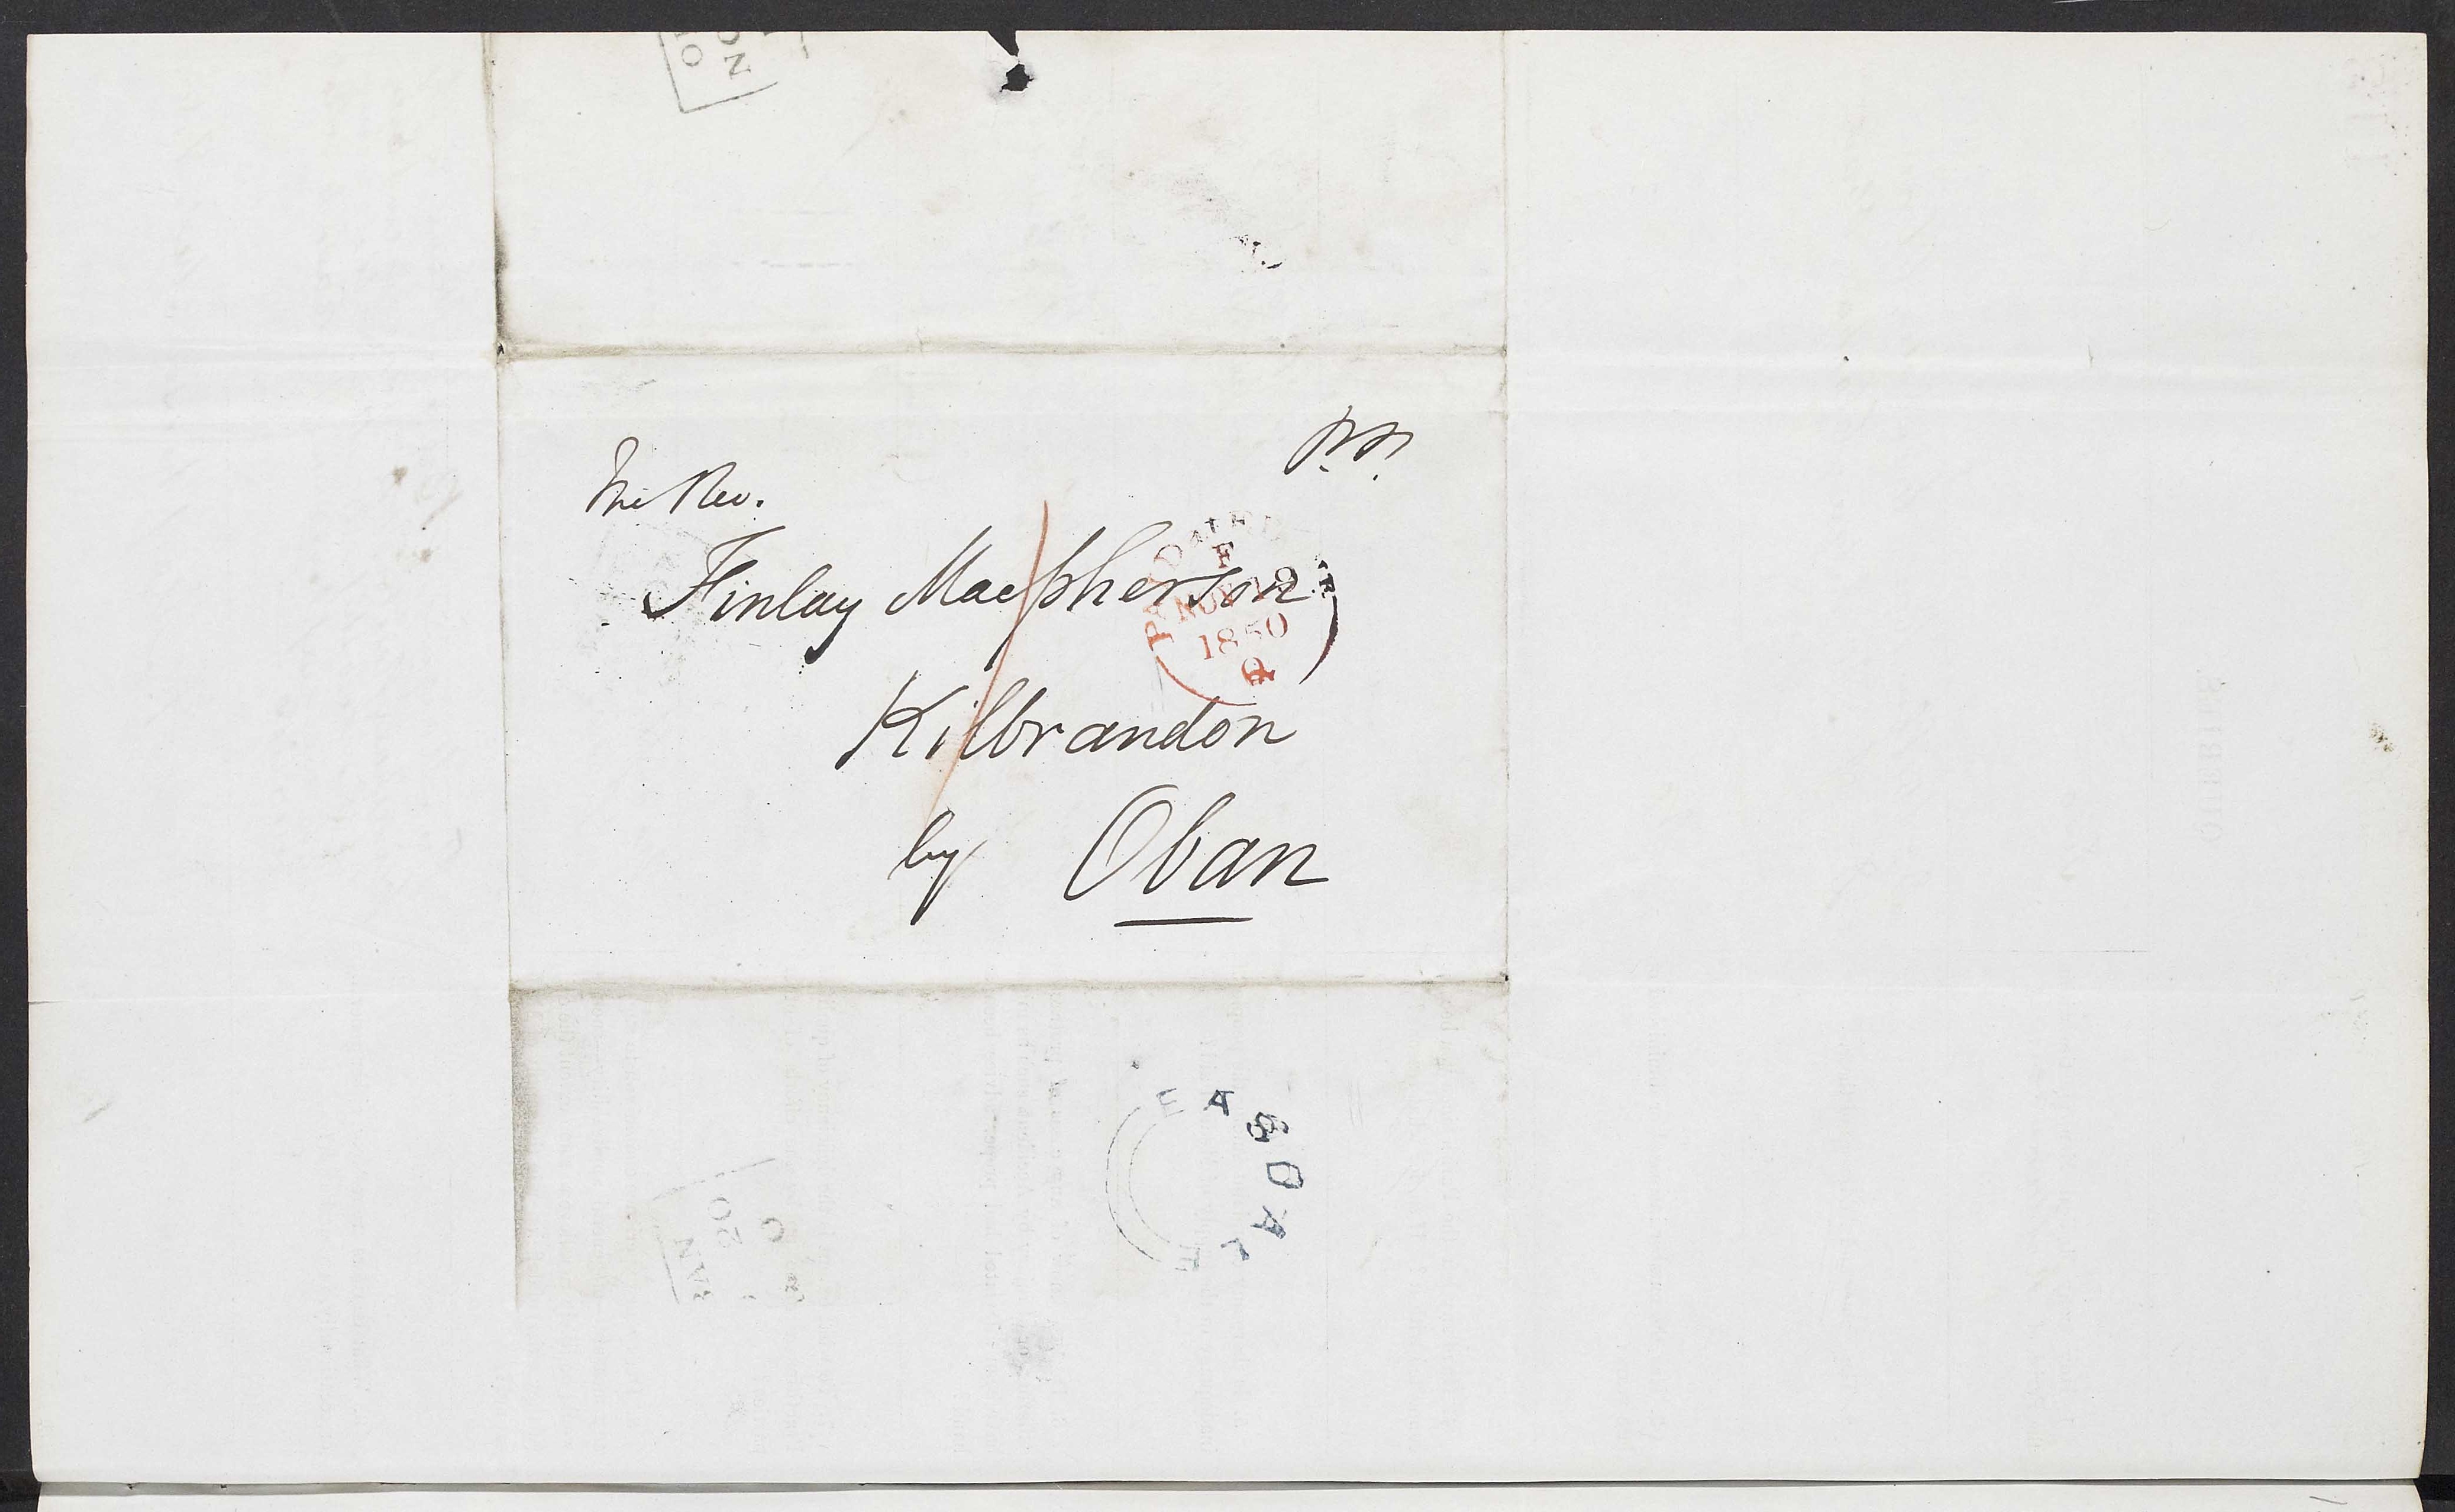 The Rev.
Finlay Macpherson
Kilbrandon
by Oban
PAID
F
NOV 18
1850
Q
EASDALE
20